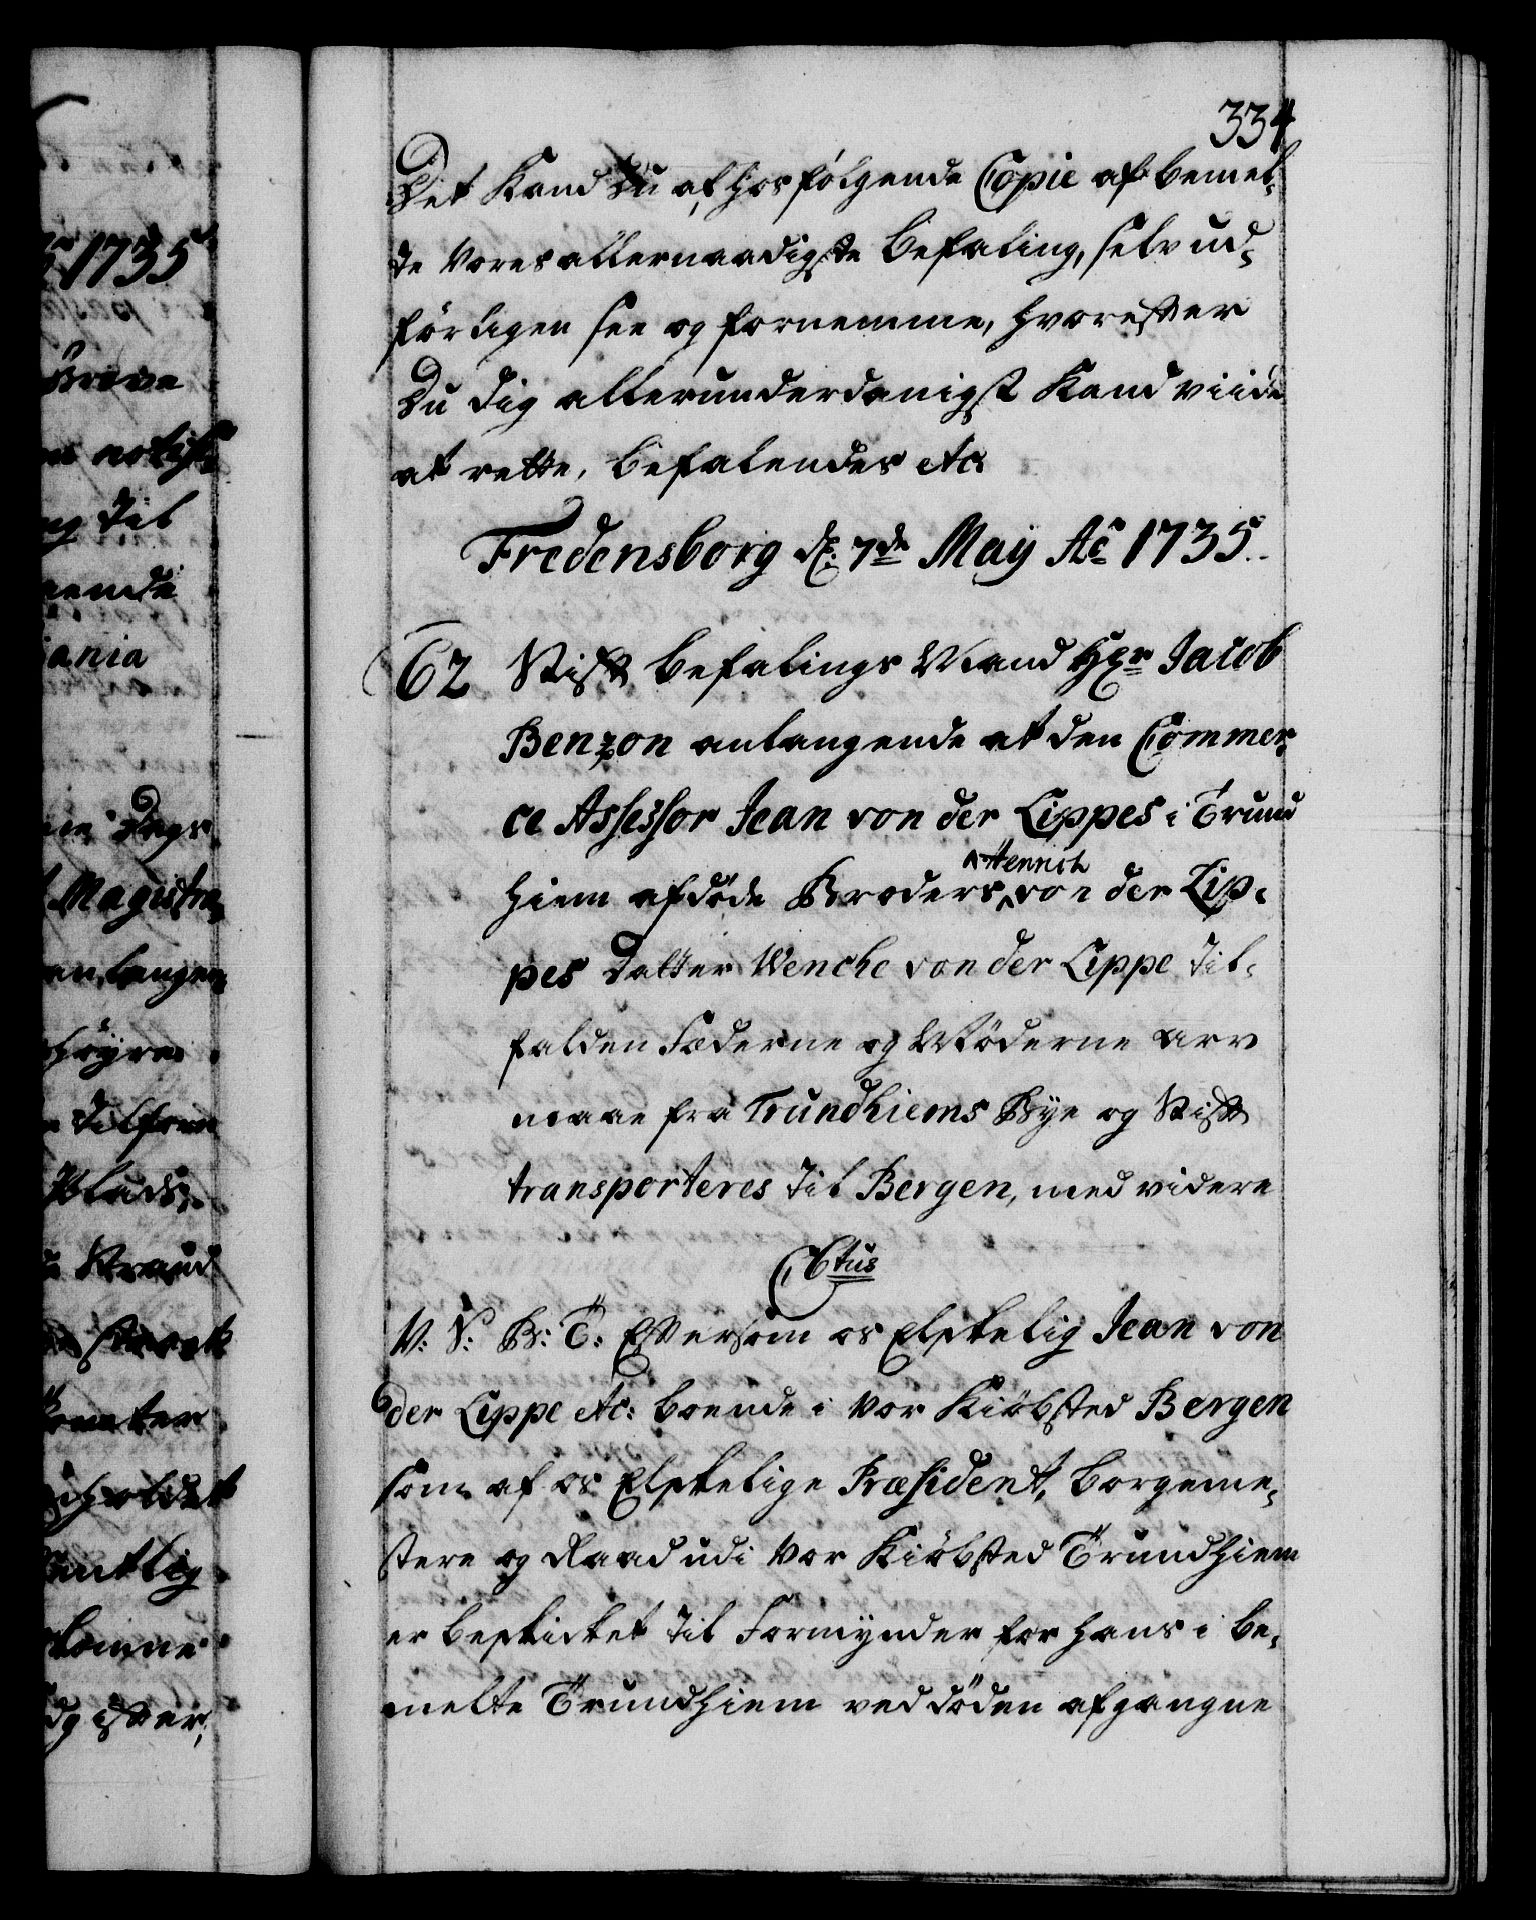 334
Det Kand du af hosfølgende Copie af bemel¬
te Vores allernaadigste Befaling, selv ud¬
førligen see og fornemme, hvorefter
Du dig allerunderdanigst Kand viide
at rette, Befalendes etc
Fredensborg d: 7de May Ao 1735.
62 Stift Befalings Mand Hr Jacob
Benzon anlangende at den Commer¬
ce Assessor Jean von der Lippes i Trund
hiem afdøde Broders Henrich von der Lip¬
pes Datter Wenche von der Lippe til¬
falden Fæderne og Møderne Arv
maae fra Trundhiems Bye og Stift
transporteres til Bergen, med videre
C 6tus
V: S: B: T: Eftersom os Elskelig Jean von
der Lippe etc: boende i Vor Kiøbsted Bergen
som af os Elskelige Præsident, Borgeme¬
stere og Raad udi Vor Kiøbsted Trundhiem
er beskicket til Formynder for hans i be¬
melte Trundhiem ved døden afgangne
1735
notif¬
og til
ania
Dags
Magistra¬
an langen¬